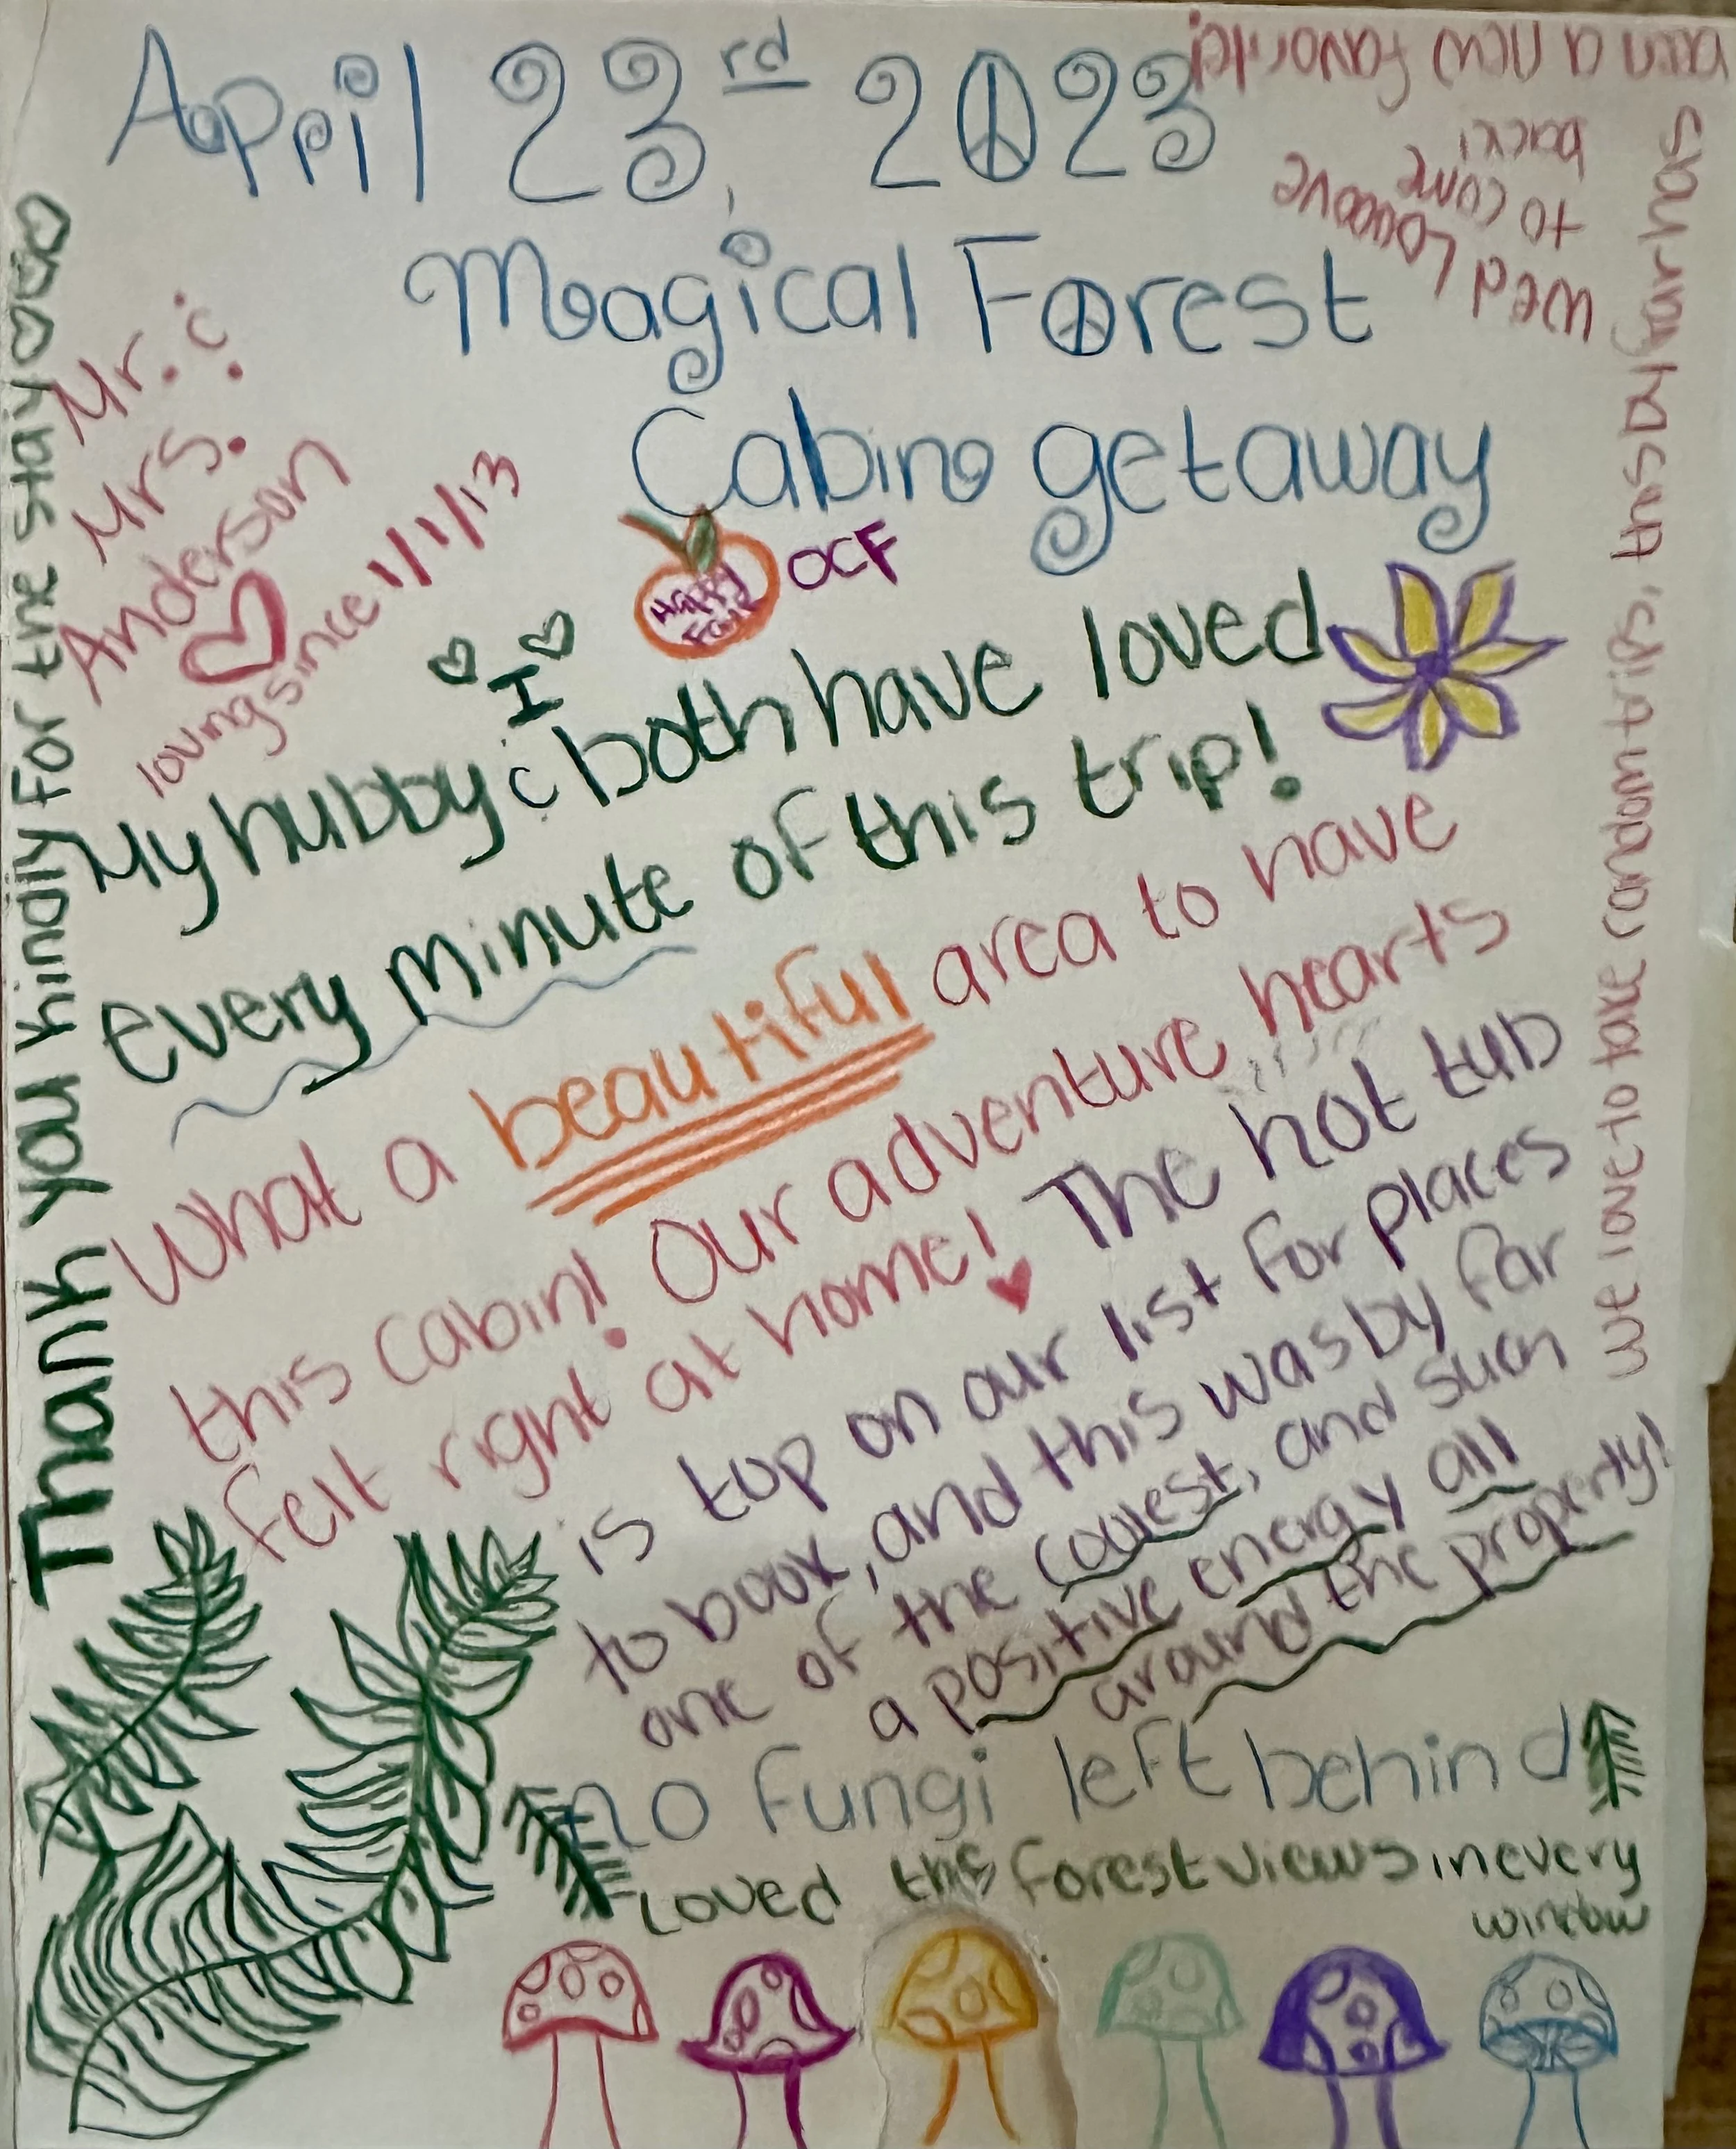 April 23rd, 2023
Magical Forest
Cabin getaway
Mr. &
Mrs.
Anderson
lovings since 1/1/13
Happy
Fair
OCF
My hubby & I both have loved
every minute of this trip!
What a beautiful area to have
this cabin! Our adventure hearts
felt right at home! The hot tub
is top on our list for places
to book, and this was by far
one of the coolest, and such
a positive energy all
around the property!
no fungi left behind
Loved the forest views in every
window
Thank you kindly for the stay
We love to take random trips, this by far has
been a new favorite!
We'd Looooove
to come
back!